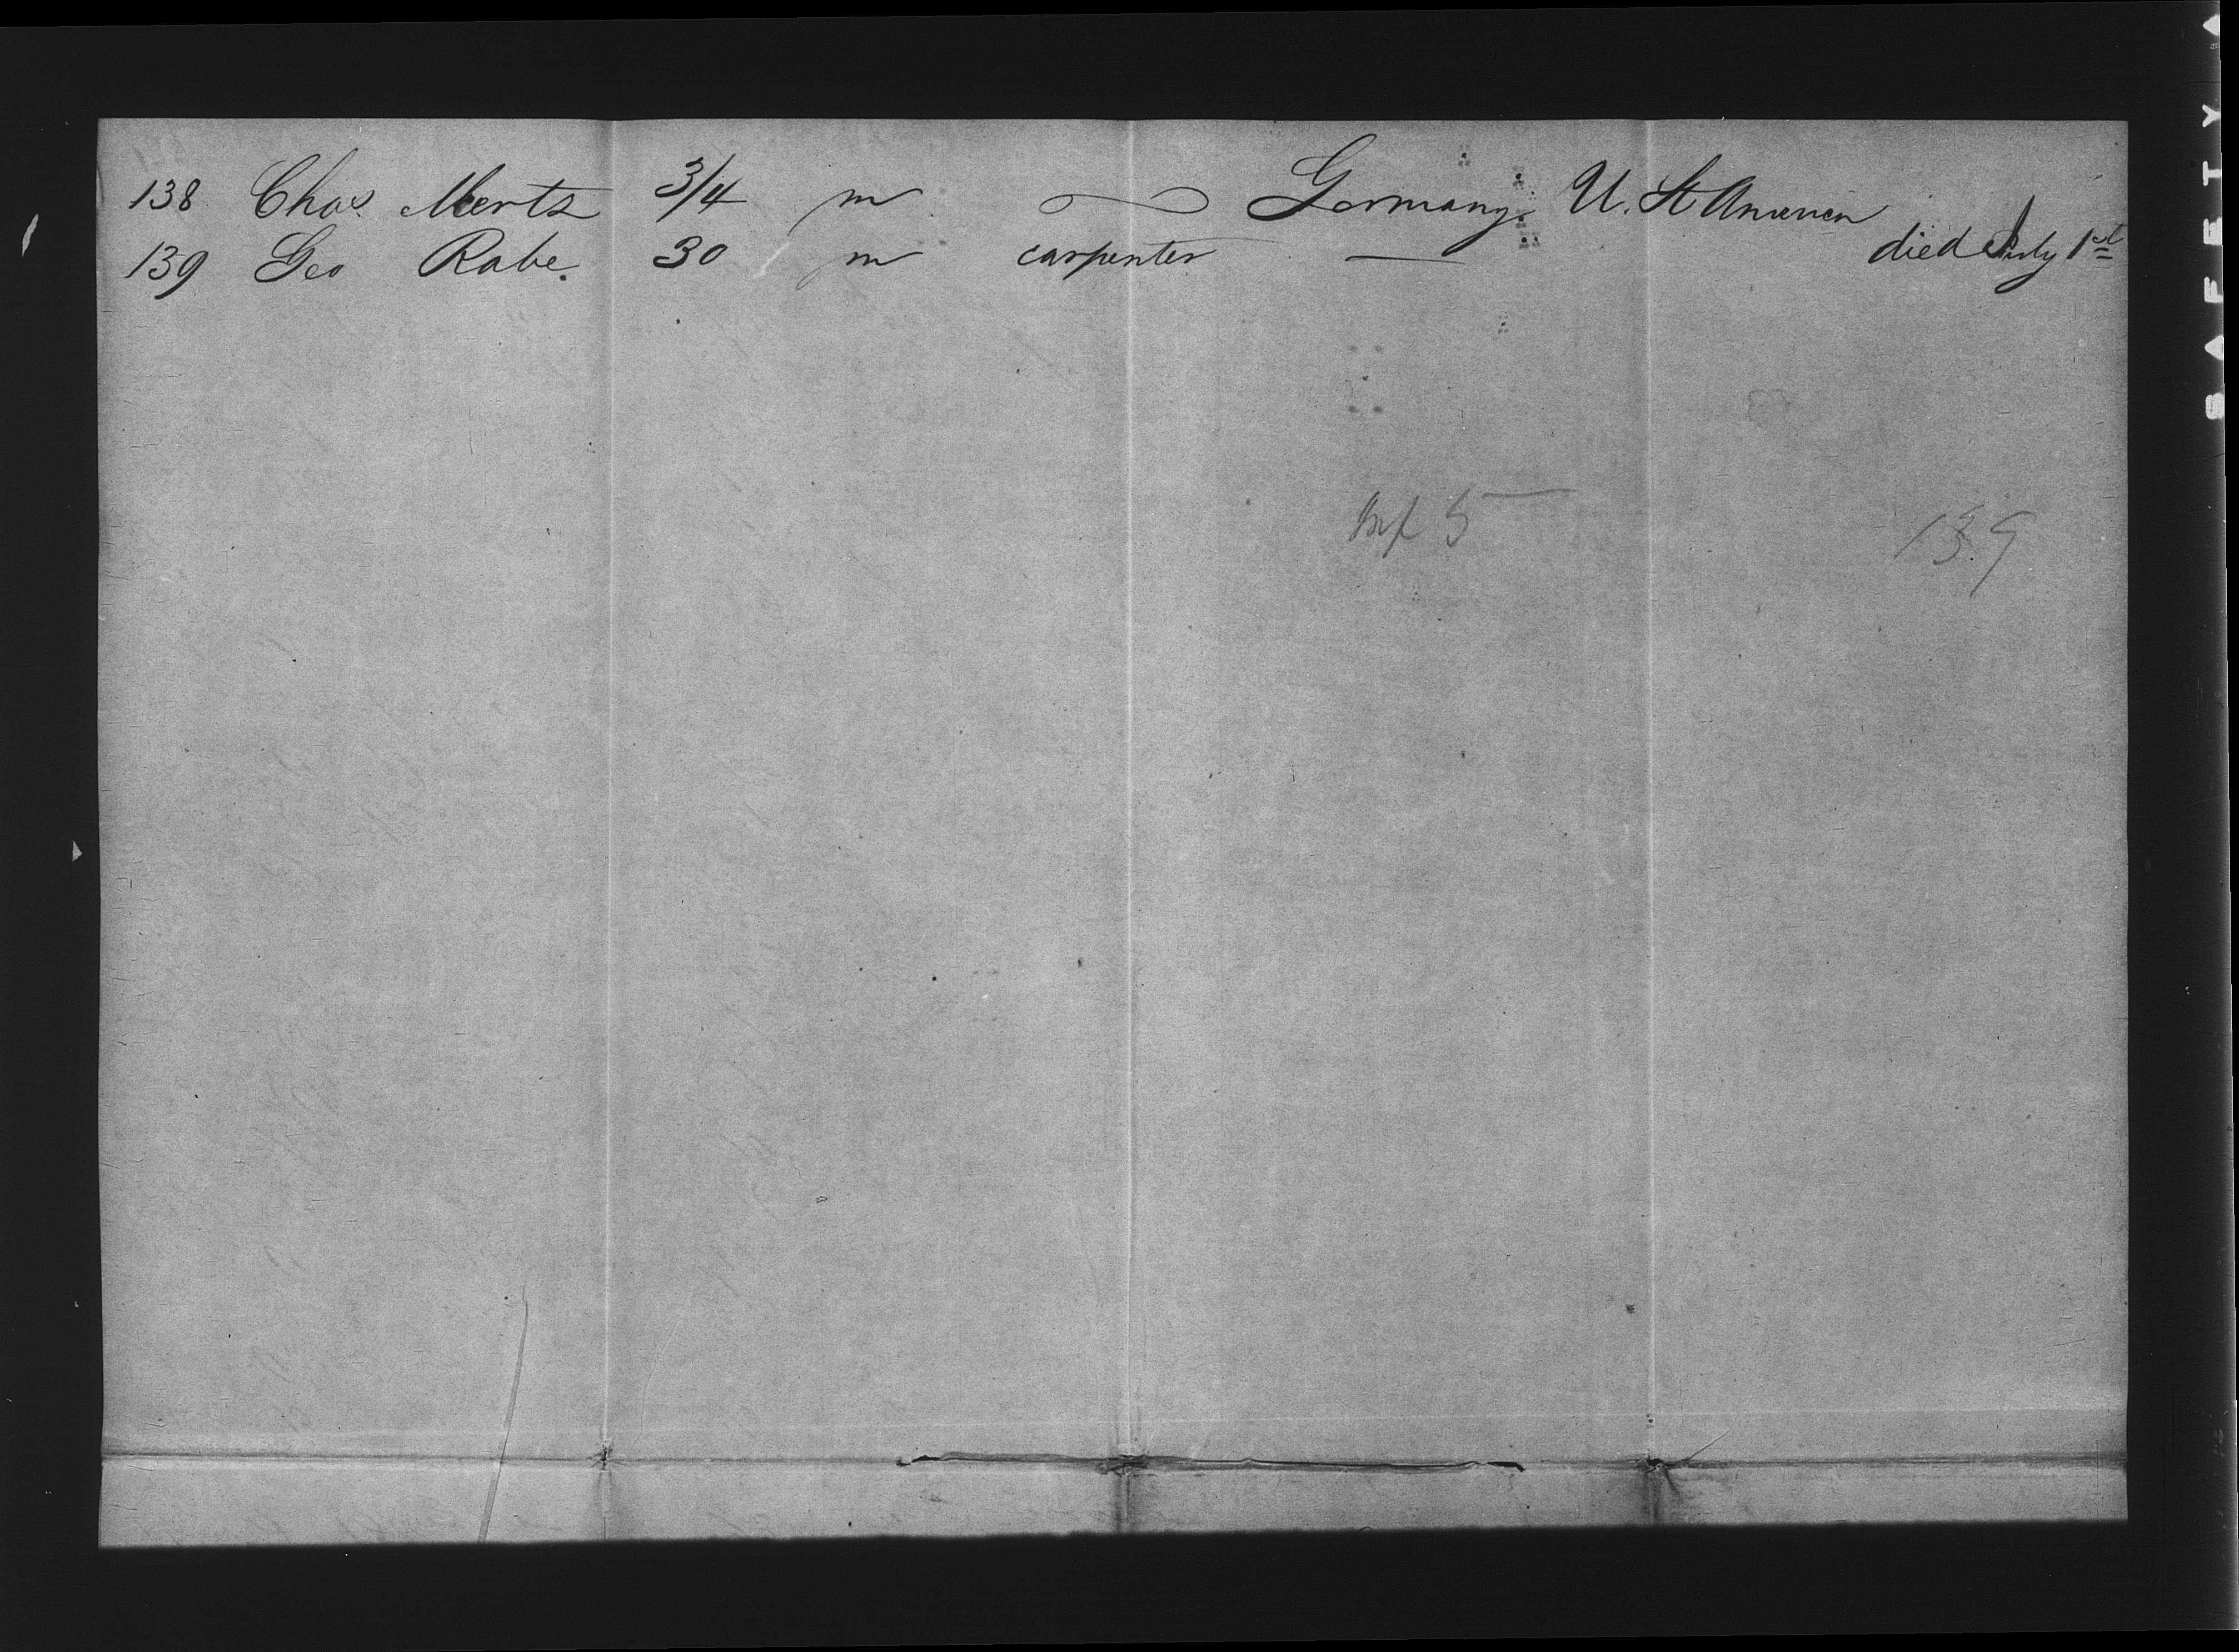 138 Chas. Mertz 3/4 m — Germany. U. St America
139 Geo Rabe. 30 m carpenter — died July 1st
Inf 5
139
SAFETY